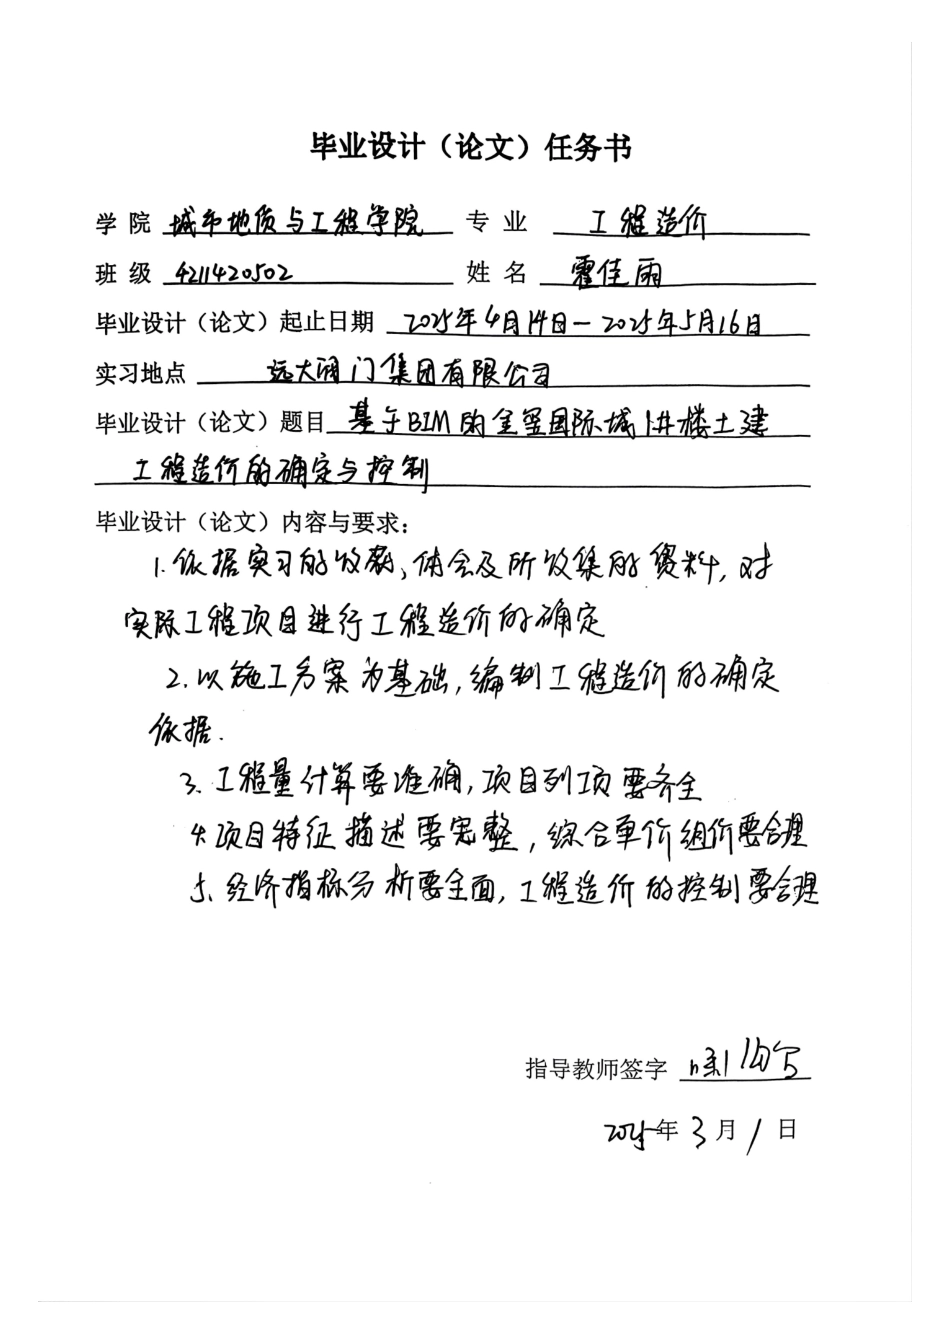 毕业设计（论文）任务书
学院 城市地质与工程学院 专业 工程造价
班级 4211420502 姓名 霍佳雨
毕业设计（论文）起止日期 2025年4月14日－2025年5月16日
实习地点 远大阀门集团有限公司
毕业设计（论文）题目 基于BIM的金玺国际城1#楼土建
工程造价的确定与控制
毕业设计（论文）内容与要求：
1.依据实习的收获、体会及所收集的资料，对
实际工程项目进行工程造价的确定
2.以施工方案为基础，编制工程造价的确定
依据.
3.工程量计算要准确，项目列项要齐全
4.项目特征描述要完整，综合单价组价要合理
5.经济指标分析要全面，工程造价的控制要合理
指导教师签字
2025年3月1日